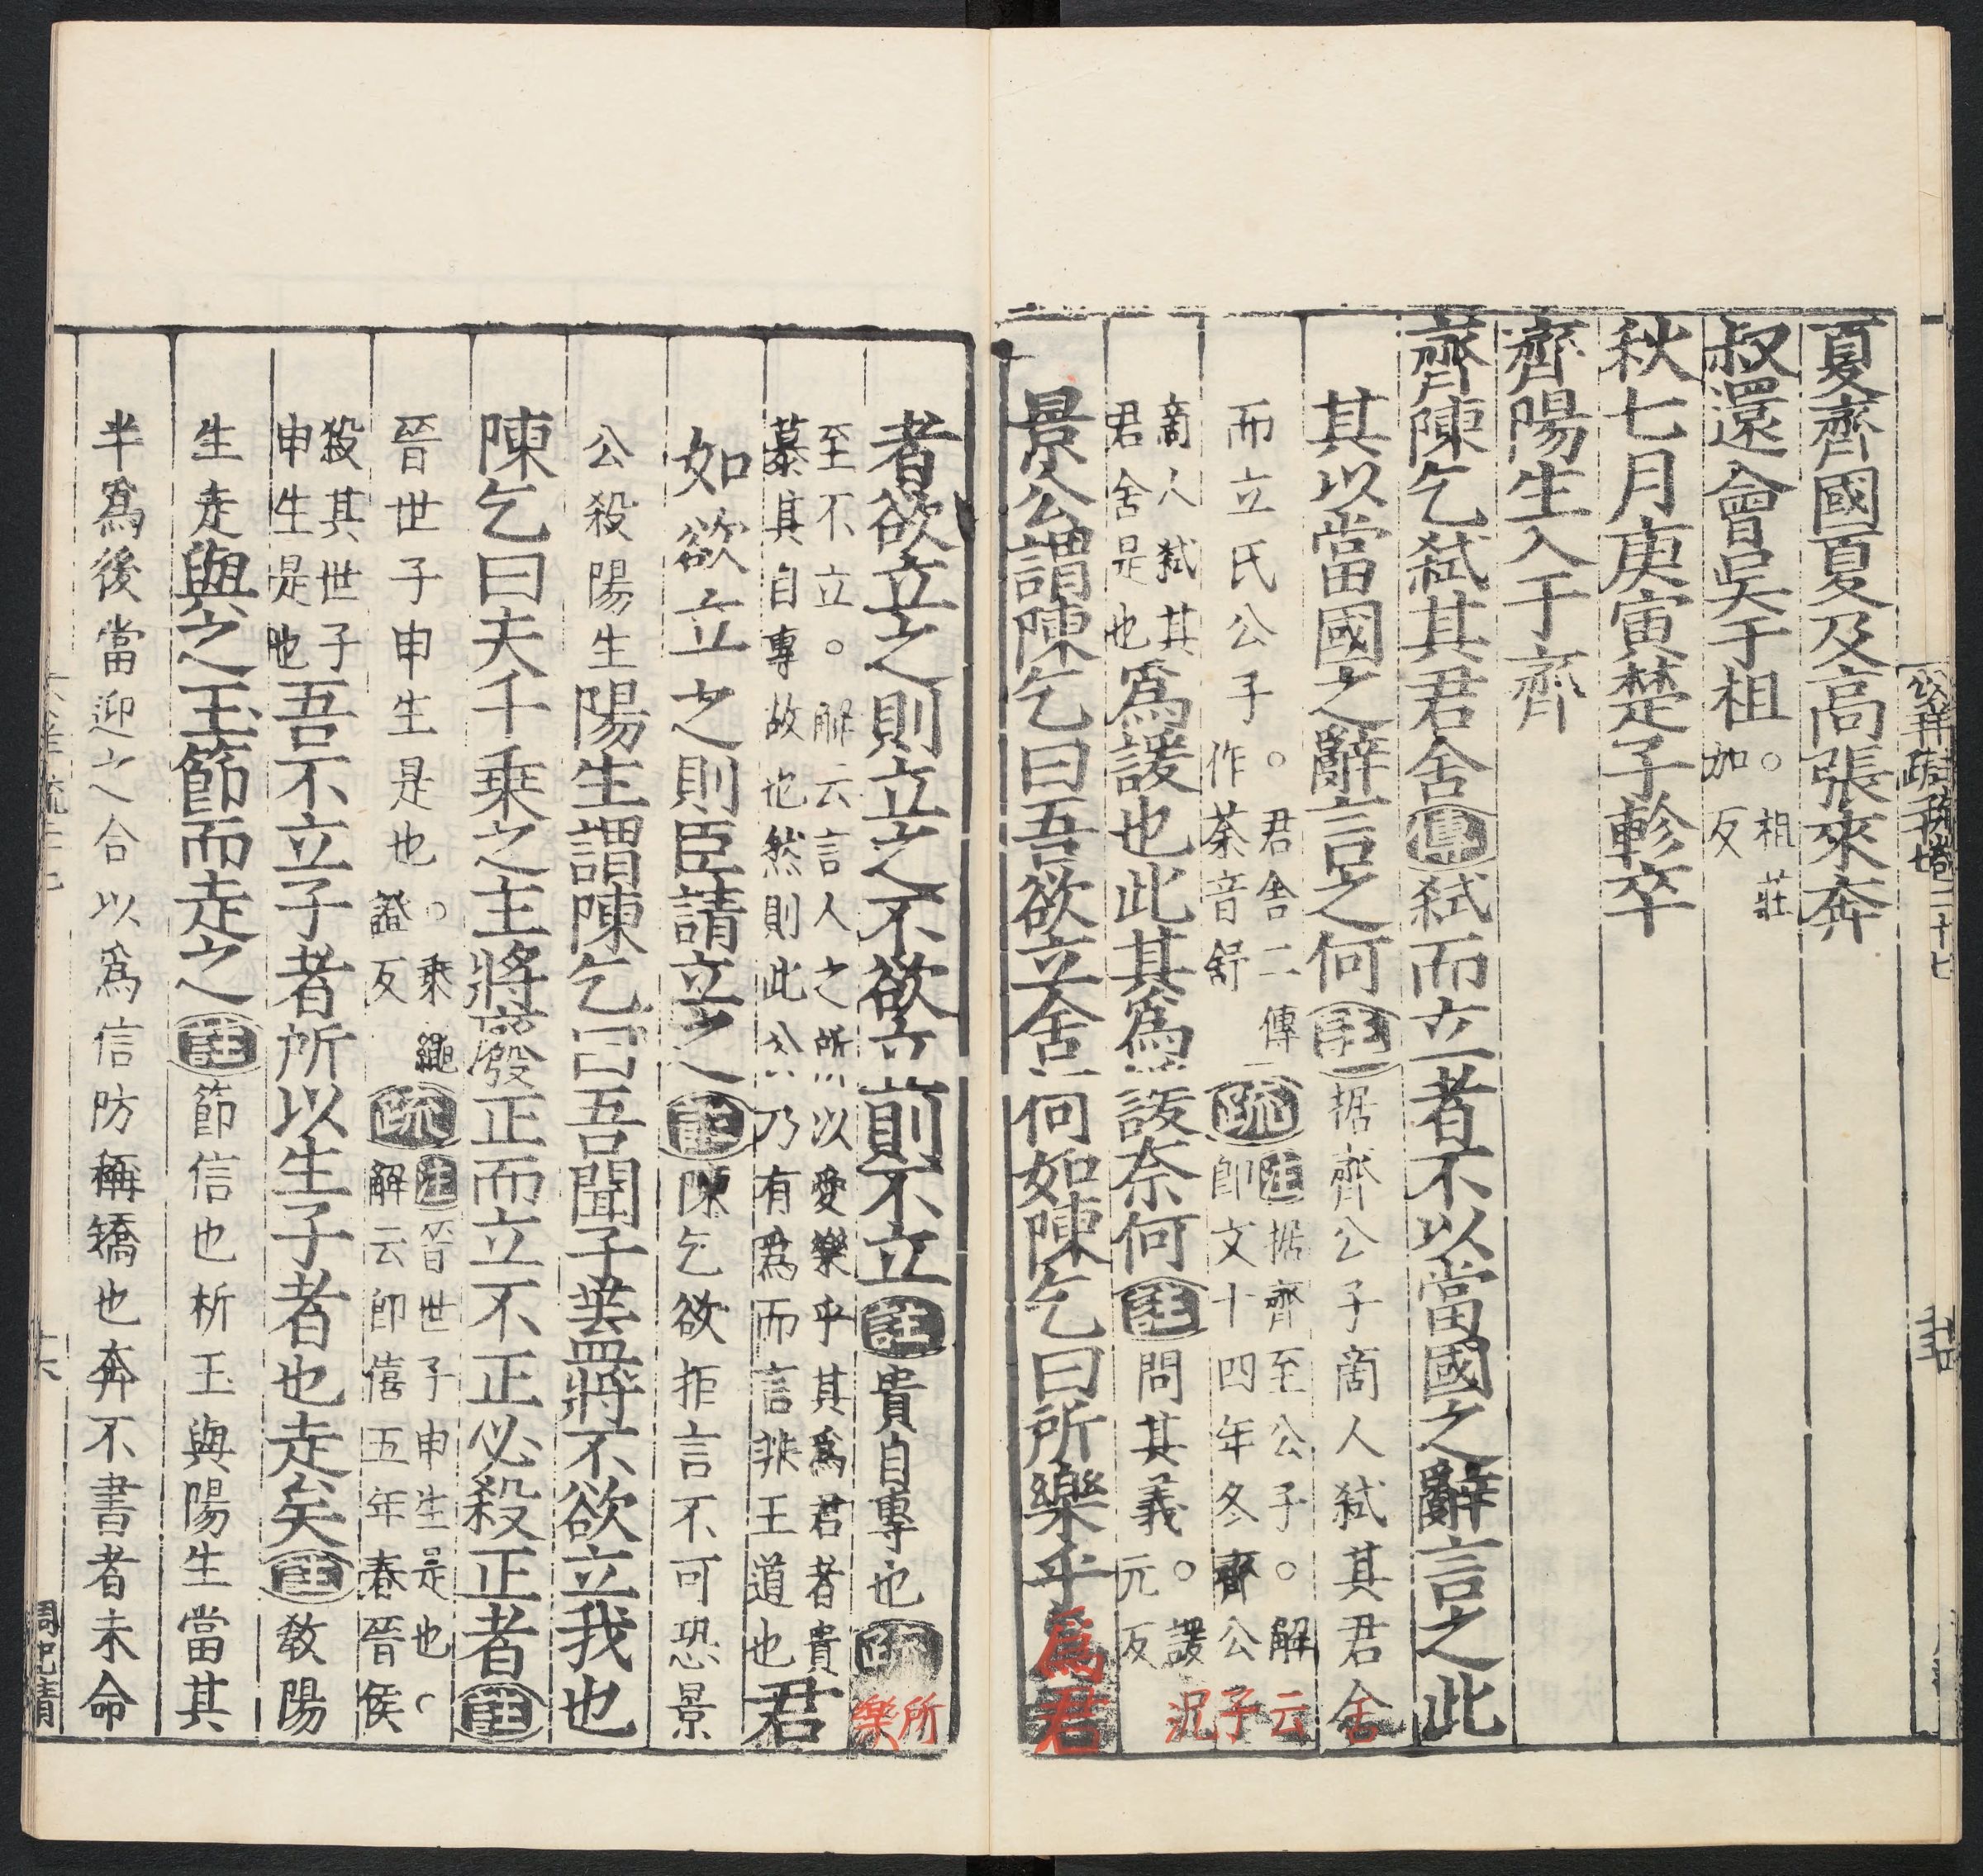 夏齊國夏及高張來奔
叔還會吳于柤○柤莊加反
秋七月庚寅楚子軫卒
齊陽生入于齊
齊陳乞弒其君舍傳弒而立者不以當國之辭言之此
其以當國之辭言之何註据齊公子商人弒其君舍
而立氏公子○君舍二傳作荼音舒疏註据齊至公子○解云即文十四年冬齊公子
商人弒其君舍是也為諼也此其為諼奈何註問其義○諼况元反
景公謂陳乞曰吾欲立舍何如陳乞曰所樂乎為君
者欲立之則立之不欲立則不立註貴自專也疏所樂
至不立○解云言人之所以愛樂乎其為君者貴慕其自專故也然則此公乃有為而言非王道也君
如欲立之則臣請立之註陳乞欲拒言不可恐景
公殺陽生陽生謂陳乞曰吾聞子蓋將不欲立我也
陳乞曰夫千乘之主將廢正而立不正必殺正者註
晉世子申生是也○乘繩證反疏註晉世子申生是也○解云即僖五年春晉侯
殺其世子申生是也吾不立子者所以生子者也走矣註教陽
生走與之玉節而走之註節信也析玉與陽生當其
半為後當迎之合以為信防稱矯也奔不書者未命
公羊疏務卷二十七
周此清